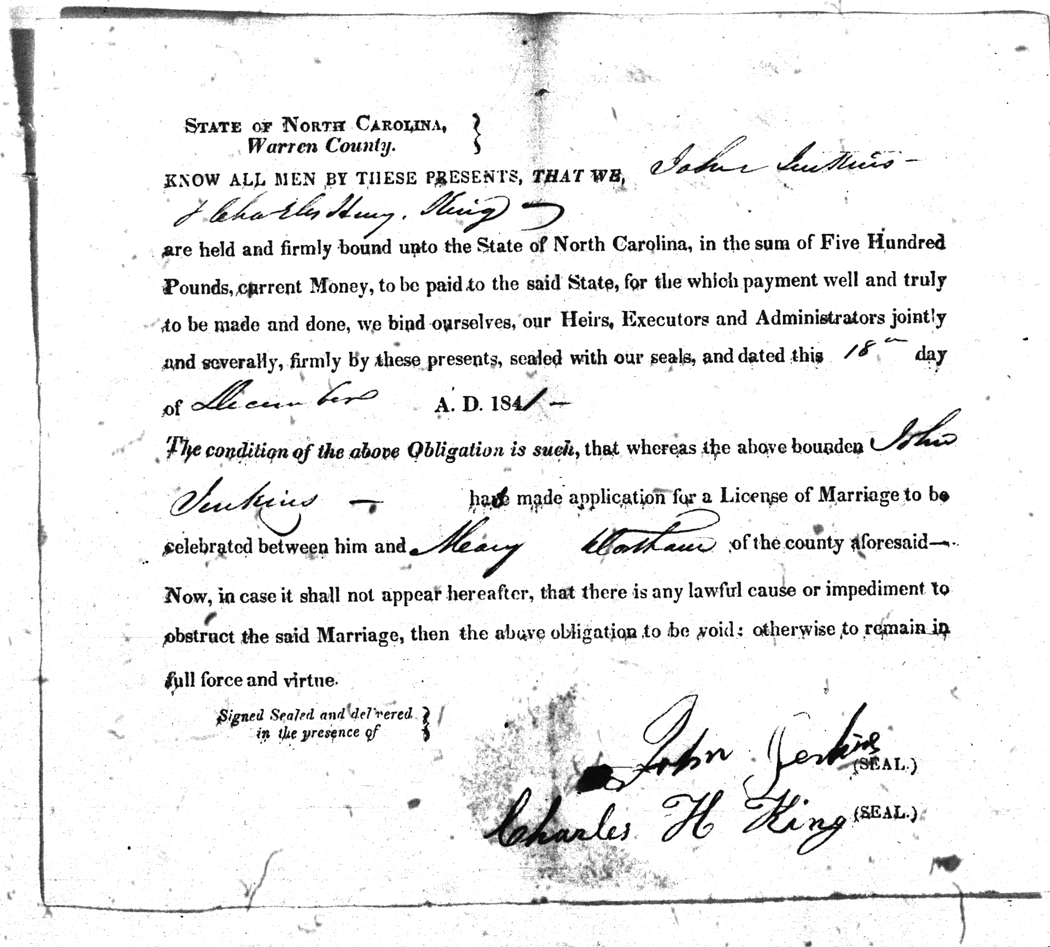 STATE OF NORTH CAROLINA,
Warren County.
KNOW ALL MEN BY THESE PRESENTS, THAT WE, John Jenkins –
& Charles Henry King
are held and firmly bound unto the State of North Carolina, in the sum of Five Hundred
Pounds, current Money, to be paid to the said State, for the which payment well and truly
to be made and done, we bind ourselves, our Heirs, Executors and Administrators jointly
and severally, firmly by these presents, sealed with our seals, and dated this 18th day
of December A. D. 1841 —
The condition of the above Obligation is such, that whereas the above bounden John
Jenkins — has made application for a License of Marriage to be
celebrated between him and Mary of the county aforesaid—
Now, in case it shall not appear hereafter, that there is any lawful cause or impediment to
obstruct the said Marriage, then the above obligation to be void: otherwise to remain in
full force and virtue.
Signed Sealed and delivered
in the presence of
John Jenkins (SEAL.)
Charles H King (SEAL.)